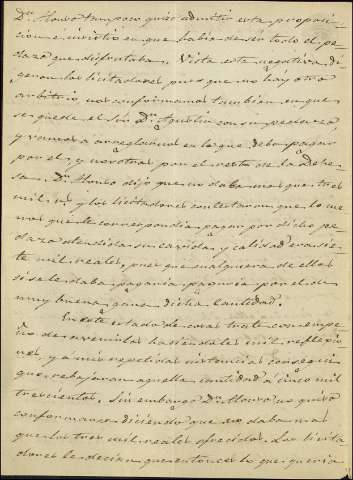 Dn. Alonso tampoco quiso admitir esta proposi-
cion é insistió en que habia de ser todo el pe-
dazo que disfrutaba. Vista esta negativa di-
geron los licitadores pues que no hay otro
arbitrio, nos conformamos tambien en que
se quede el Sor. Dn. Agustin con su pedazo,
y vamos á arreglarnos en lo que debe pagar
por el, y nosotros por el resto de la Dehe-
sa. Dn. Alonso dijo que no daba mas que tres
mil rs. y los licitadores contestaron que lo me-
nos que le correspondia pagar por dicho pe-
dazo atendida su cavida y calidad era sie-
te mil reales, pues que cualquiera de ellos
si se le daba pagaria por el de
muy buena gana dicha cantidad.
En este estado de cosas traté con empe-
ño de avenirlos haciendoles mil reflexio-
nes, y á mis repetidas instancias conseguí
que rebajaran aquella cantidad á cinco mil
trescientos. Sin embargo Dn. Alonso no quiso
conformarse diciendo que no daba mas
que los tres mil reales ofrecidos. Los licita-
dores le decian que entonces lo que queria